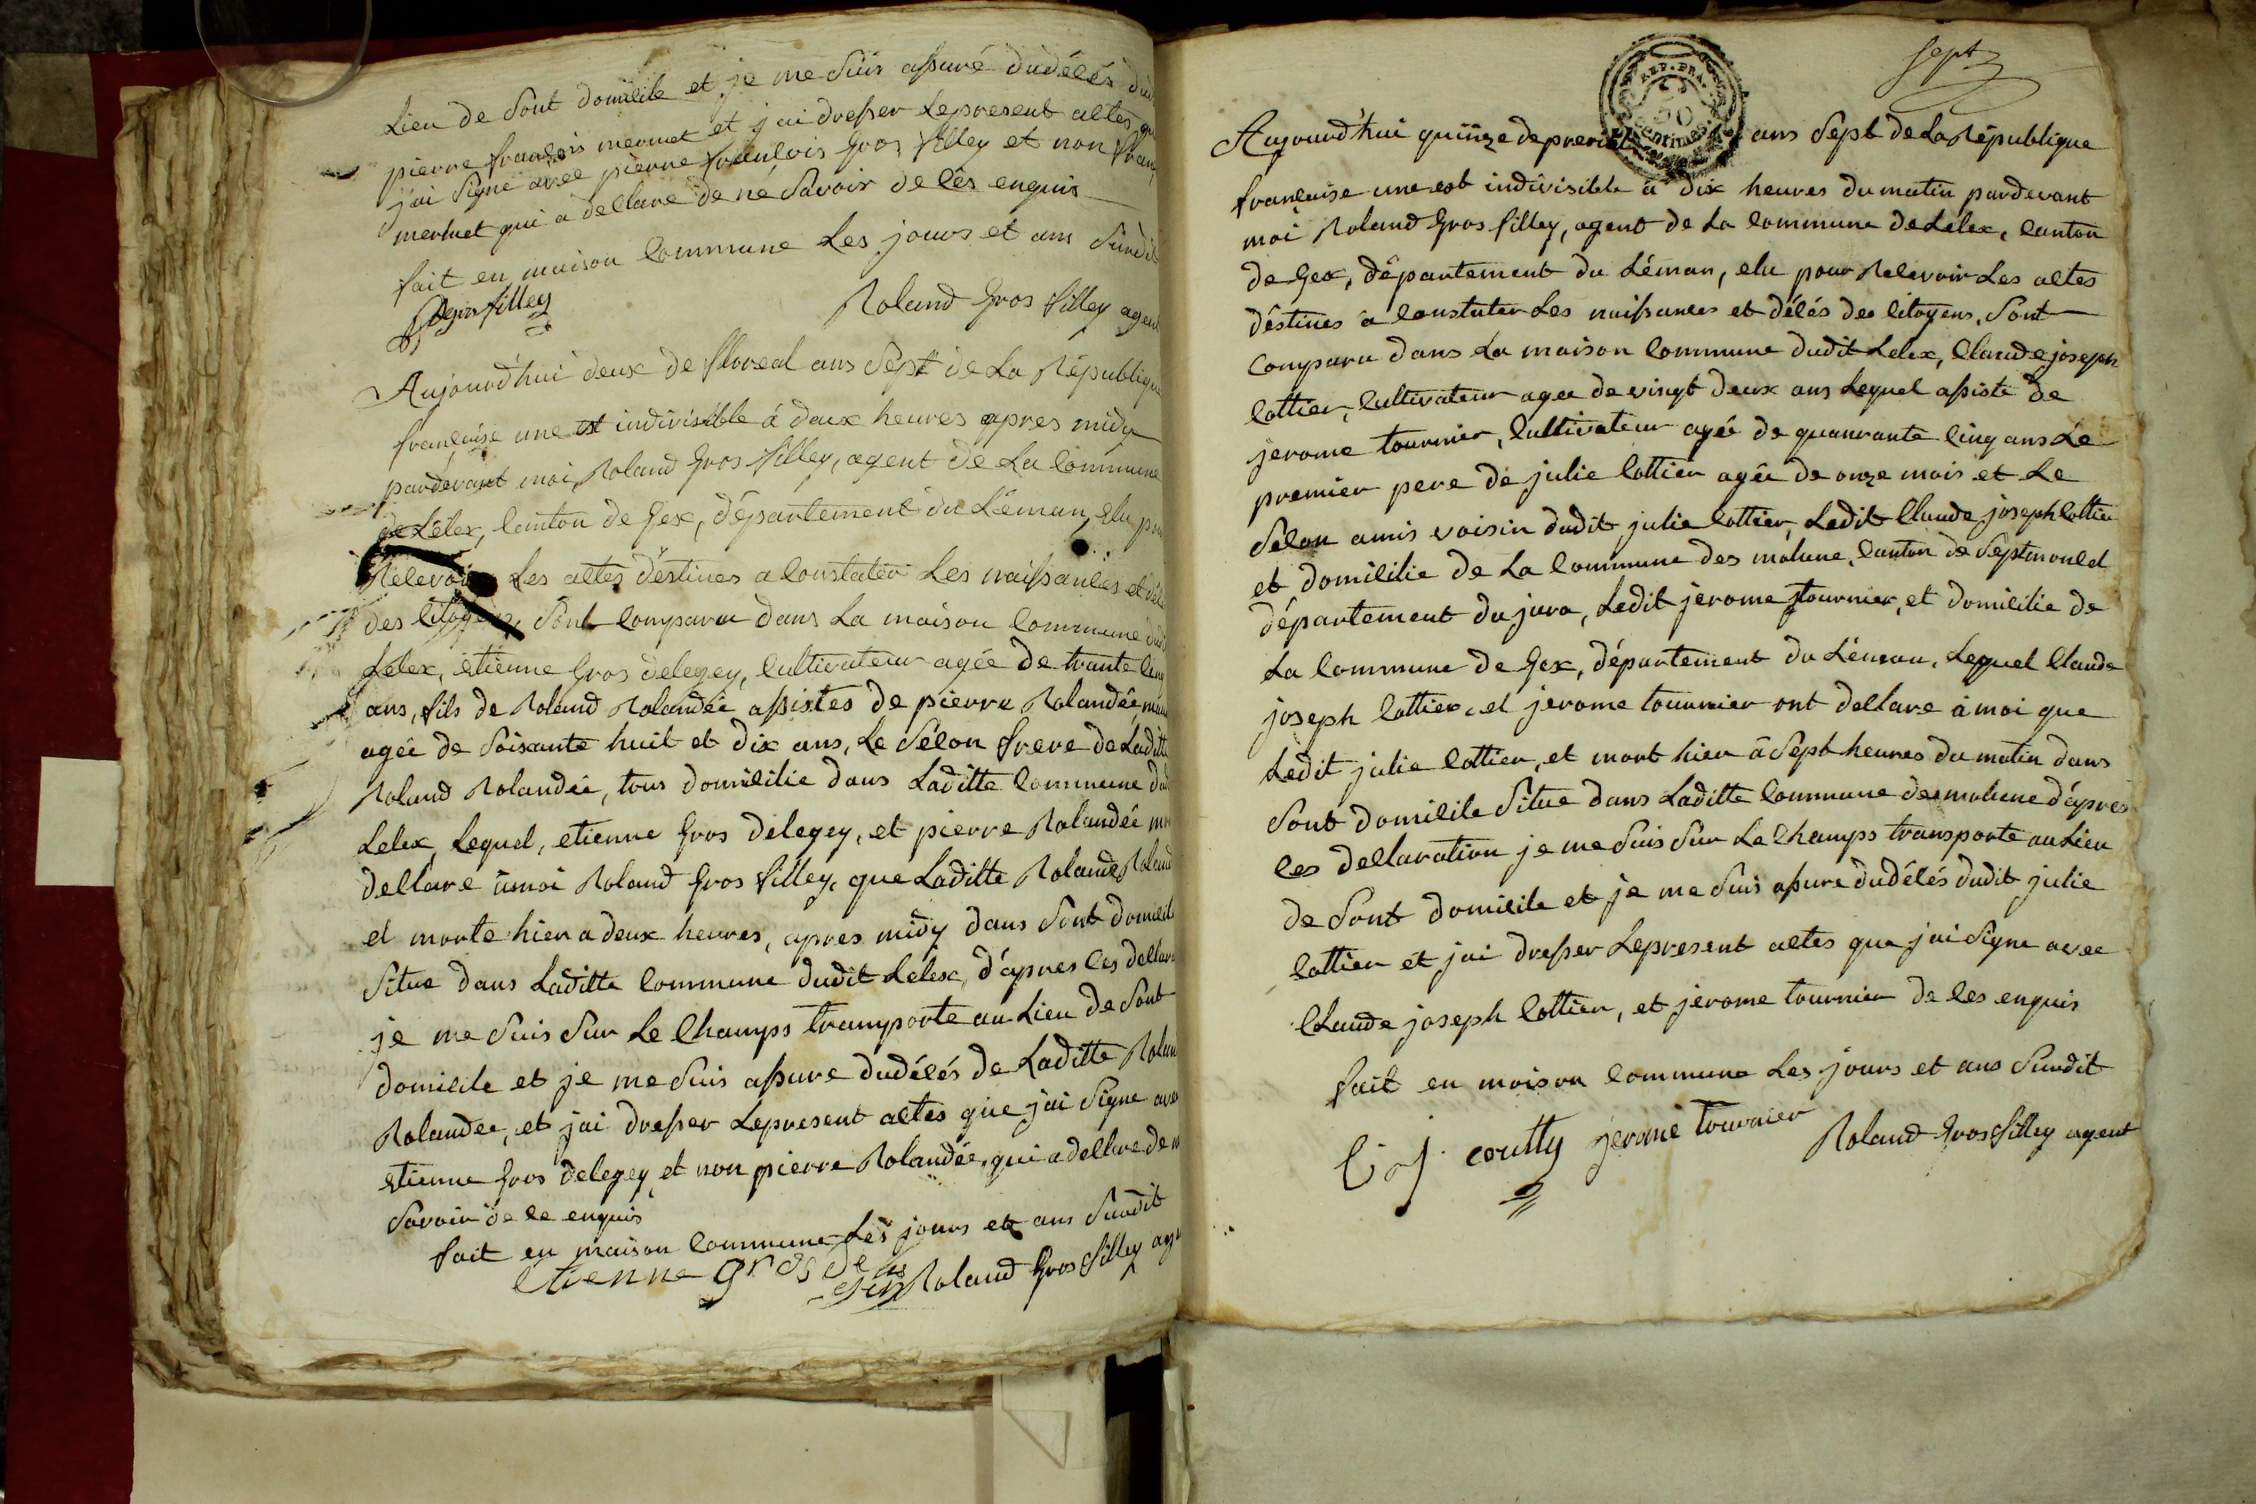 Lieu de Sont domicile et je me Suis assuré du décés du
pierre françois mermet et j'ai dresser Le present actes que
j'ai Signe avec pierre françois Gros filley et non fran
mermet qui a declare de ne Savoir de cês enquis
fait en maison Commune Les jours et ans Susdit
Roland Gros filley agent
Aujourd'hui deux de floreal ans Sept de La République
française une et indivisible á deux heures apres midy
pardevant moi, Roland Gros filley, agent de La Commune
de Lélex, Canton de Gex, département du Léman, elu pour
Recevoir Les actes déstines a Constater Les naissances et décé
des Citoyens, Sont Comparu dans La maison Commune dudit
Lelex, etienne Gros delegey, Cultivateur agée de trante Cinq
ans, fils de Roland Rolandée assistes de pierre Rolandée
agée de Soixante huit et dix ans, Le Sécon frere de Laditte
Roland Rolandée, tous domicilie dans Laditte Commune dudit
Lelex, Lequel, etienne Gros delegey, et pierre Rolandée
declare àmoi Roland Gros filley, que Laditte Rolande Roland
et morte hier a deux heures, apres midy dans Sont domicile
Situe dans Laditte Commune dudit Lelex, d'apres Ces declara
je me Suis Sur Le Champs transporte au Lieu de Sont
domicile et je me Suis assure du décés de Laditte Roland
Rolandée, et j'ai dresser Le present actes que j'ai Signe avec
etienne Gros delegey et non pierre Rolandée, qui a declare de n
Savoir de ce enquis
fait en maison Commune Les jours et ans Susdit
Etienne gros de
gey Roland Gros filley agen
Sept
REP. FRA.
50
Centimes
Aujourd'hui quinze de preri ans Sept de La République
française une et indivisible à dix heures du matin pardevant
moi Roland Gros filley, agent de La Commune de Lélex, Canton
de Gex, département du Léman, elu pour Recevoir Les actes
déstines a Constater Les naissances et décés des Citoyens, Sont
Comparu dans La maison Commune dudit Lelex, Claude joseph
Cottier, Cultivateur agee de vingt deux ans Lequel assiste de
jerome tournier, Cultivateur agée de quanrante Cinq ans Le
premier pere de julie Cottier agée de onze mois et Le
Sécon amis voisin dudit julie Cottier, Ledit Claude joseph Cottier
et domicilie de La Commune des molune, Canton de Septmoncel
département du jura, Ledit jerome tournier, et domicilie de
La Commune de Gex, département du Léman, Lequel Claude
joseph Cottier, et jerome tournier ont declare à moi que
Ledit julie Cottier, et mort hier à Sept heures du matin dans
Sont domicile Situe dans Laditte Commune des molune d'apres
Ces declaration je me Suis Sur Le Champs transporte au Lieu
de Sont domicile et je me Suis assure du décés dudit julie
Cottier et j'ai dresser Le present actes que j'ai Signe avec
Claude joseph Cottier, et jerome tournier de Ces enquis
fait en maison Commune Les jours et ans Susdit
C j coutty jerome tournier Roland Gros filley agent